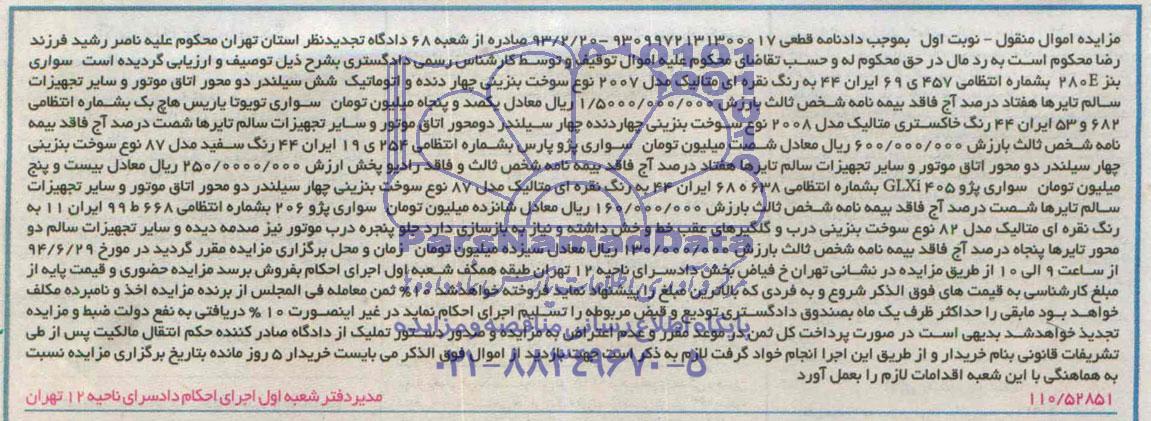 مزایده اموال منقول - نوبت اول بموجب دادنامه قطعی ۹۳۰۹۹۷۲۱۳۱۳۰۰۰۱۷ - ۹۳/۲/۲۰ صادره از شعبه ۶۸ دادگاه تجدیدنظر استان تهران محکوم علیه ناصر رشید فرزند
رضا محکوم است به رد مال در حق محکوم له و حسب تقاضای محکوم علیه اموال توقیف و توسط کارشناس رسمی دادگستری بشرح ذیل توصیف و ارزیابی گردیده است سواری
بنز ۲۸۰E بشماره انتظامی ۴۵۷ ی ۶۹ ایران ۴۴ به رنگ نقره ای متالیک مدل ۲۰۰۷ نوع سوخت بنزینی چهار دنده و اتوماتیک شش سیلندر دو محور اتاق موتور و سایر تجهیزات
سالم تایرها هفتاد درصد آج فاقد بیمه نامه شخص ثالث بارزش ۱/۵۰۰۰/۰۰۰/۰۰۰ ریال معادل یکصد و پنجاه میلیون تومان سواری تویوتا یاریس هاچ بک بشماره انتظامی
۶۸۲ و ۵۳ ایران ۴۴ رنگ خاکستری متالیک مدل ۲۰۰۸ نوع سوخت بنزینی چهاردنده چهار سیلندر دومحور اتاق موتور و سایر تجهیزات سالم تایرها شصت درصد آج فاقد بیمه
نامه شخص ثالث بارزش ۶۰۰/۰۰۰/۰۰۰ ریال معادل شصت میلیون تومان سواری پژو پارس بشماره انتظامی ۲۵۴ ی ۱۹ ایران ۴۴ رنگ سفید مدل ۸۷ نوع سوخت بنزینی
چهار سیلندر دو محور اتاق موتور و سایر تجهیزات سالم تایرها هفتاد درصد آج فاقد بیمه نامه شخص ثالث و فاقد رادیو پخش ارزش ۲۵۰/۰۰۰۰/۰۰۰ ریال معادل بیست و پنج
میلیون تومان سواری پژو ۴۰۵ GLXi بشماره انتظامی ۶۳۸ ۶۸۰ ایران ۴۴ به رنگ نقره ای متالیک مدل ۸۷ نوع سوخت بنزینی چهار سیلندر دو محور اتاق موتور و سایر تجهیزات
سالم تایرها شصت درصد آج فاقد بیمه نامه شخص ثالث بارزش ۱۶۰/۰۰۰/۰۰۰ ریال معادل شانزده میلیون تومان سواری پژو ۲۰۶ بشماره انتظامی ۶۶۸ ط ۹۹ ایران ۱۱ به
رنگ نقره ای متالیک مدل ۸۲ نوع سوخت بنزینی درب و گلگیرهای عقب خط و خش داشته و نیاز به بازسازی دارد جلو پنجره درب موتور نیز صدمه دیده و سایر تجهیزات سالم دو
محور تایرها پنجاه درصد آج فاقد بیمه نامه شخص ثالث بارزش ۱۳۰/۰۰۰/۰۰۰ ریال معادل سیزده میلیون تومان زمان و محل برگزاری مزایده مقرر گردید در مورخ ۹۴/۶/۲۹
از ساعت ۹ الی ۱۰ از طریق مزایده در نشانی تهران خ فیاض بخش دادسرای ناحیه ۱۲ تهران طبقه همکف شعبه اول اجرای احکام بفروش برسد مزایده حضوری و قیمت پایه از
مبلغ کارشناسی به قیمت های فوق الذکر شروع و به فردی که بالاترین مبلغ را پیشنهاد نماید فروخته خواهدشد ۱۰% ثمن معامله فی المجلس از برنده مزایده اخذ و نامبرده مکلف
خواهد بود مابقی را حداکثر ظرف یک ماه بصندوق دادگستری تودیع و قبض مربوطه را تسلیم اجرای احکام نماید در غیر اینصورت ۱۰ % دریافتی به نفع دولت ضبط و مزایده
تجدید خواهدشد بدیهی است در صورت پرداخت کل ثمن در موعد مقرر و عدم اعتراض به مزایده و صدور دستور تملیک از دادگاه صادر کننده حکم انتقال مالکیت پس از طی
تشریفات قانونی بنام خریدار و از طریق این اجرا انجام خواد گرفت لازم به ذکر است جهت بازدید از اموال فوق الذکر می بایست خریدار ۵ روز مانده بتاریخ برگزاری مزایده نسبت
به هماهنگی با این شعبه اقدامات لازم را بعمل آورد
۱۱۰/۵۲۸۵۱ مدیردفتر شعبه اول اجرای احکام دادسرای ناحیه ۱۲ تهران
ParsNamadData
پایگاه اطلاع رسانی مناقصه و مزایده
۰۲۱-۸۸۳۴۹۶۷۰-۵